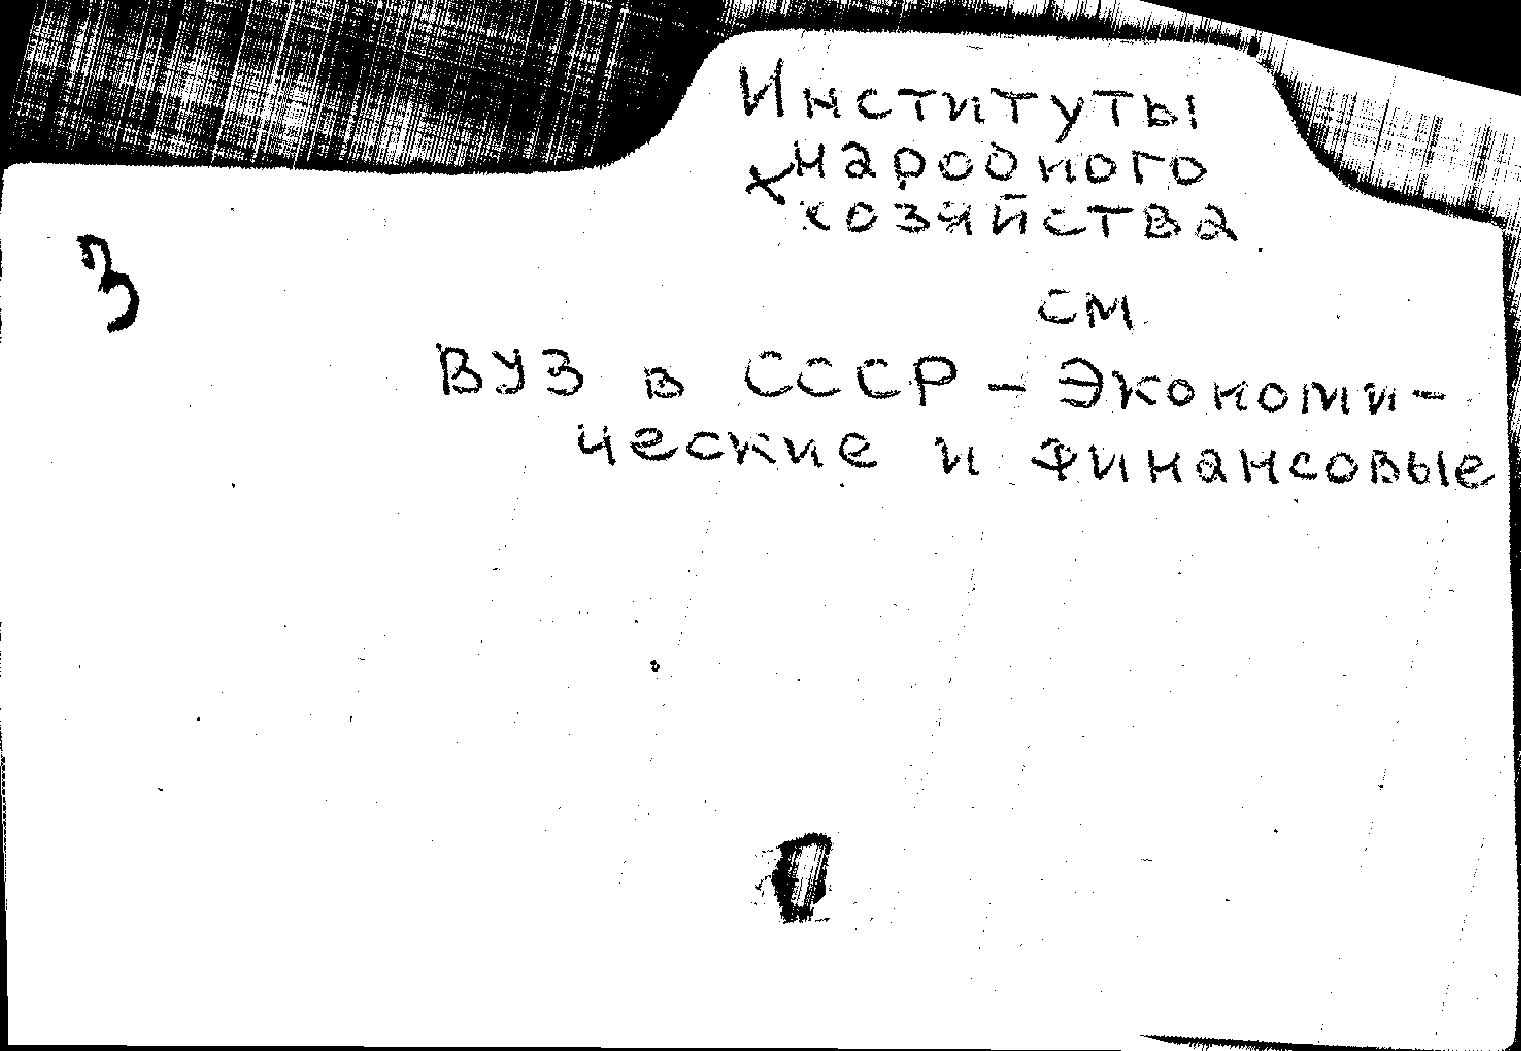 Институты
народного
хозяйства
3
см
ВУЗ в СССР - Экономи-
ческие и финансовые